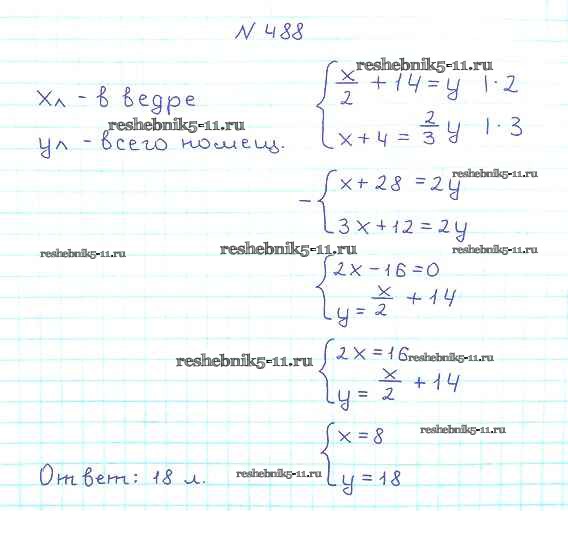 N 488
reshebnik5-11.ru
xл - в ведре
x/2 + 14 = y | · 2
reshebnik5-11.ru
yл - всего помещ.
x + 4 = 2/3 y | · 3
reshebnik5-11.ru
- x + 28 = 2y
3x + 12 = 2y
reshebnik5-11.ru
reshebnik5-11.ru
reshebnik5-11.ru
2x - 16 = 0
y = x/2 + 14
2x = 16
reshebnik5-11.ru
reshebnik5-11.ru
y = x/2 + 14
x = 8
reshebnik5-11.ru
Ответ: 18 л.
reshebnik5-11.ru
y = 18